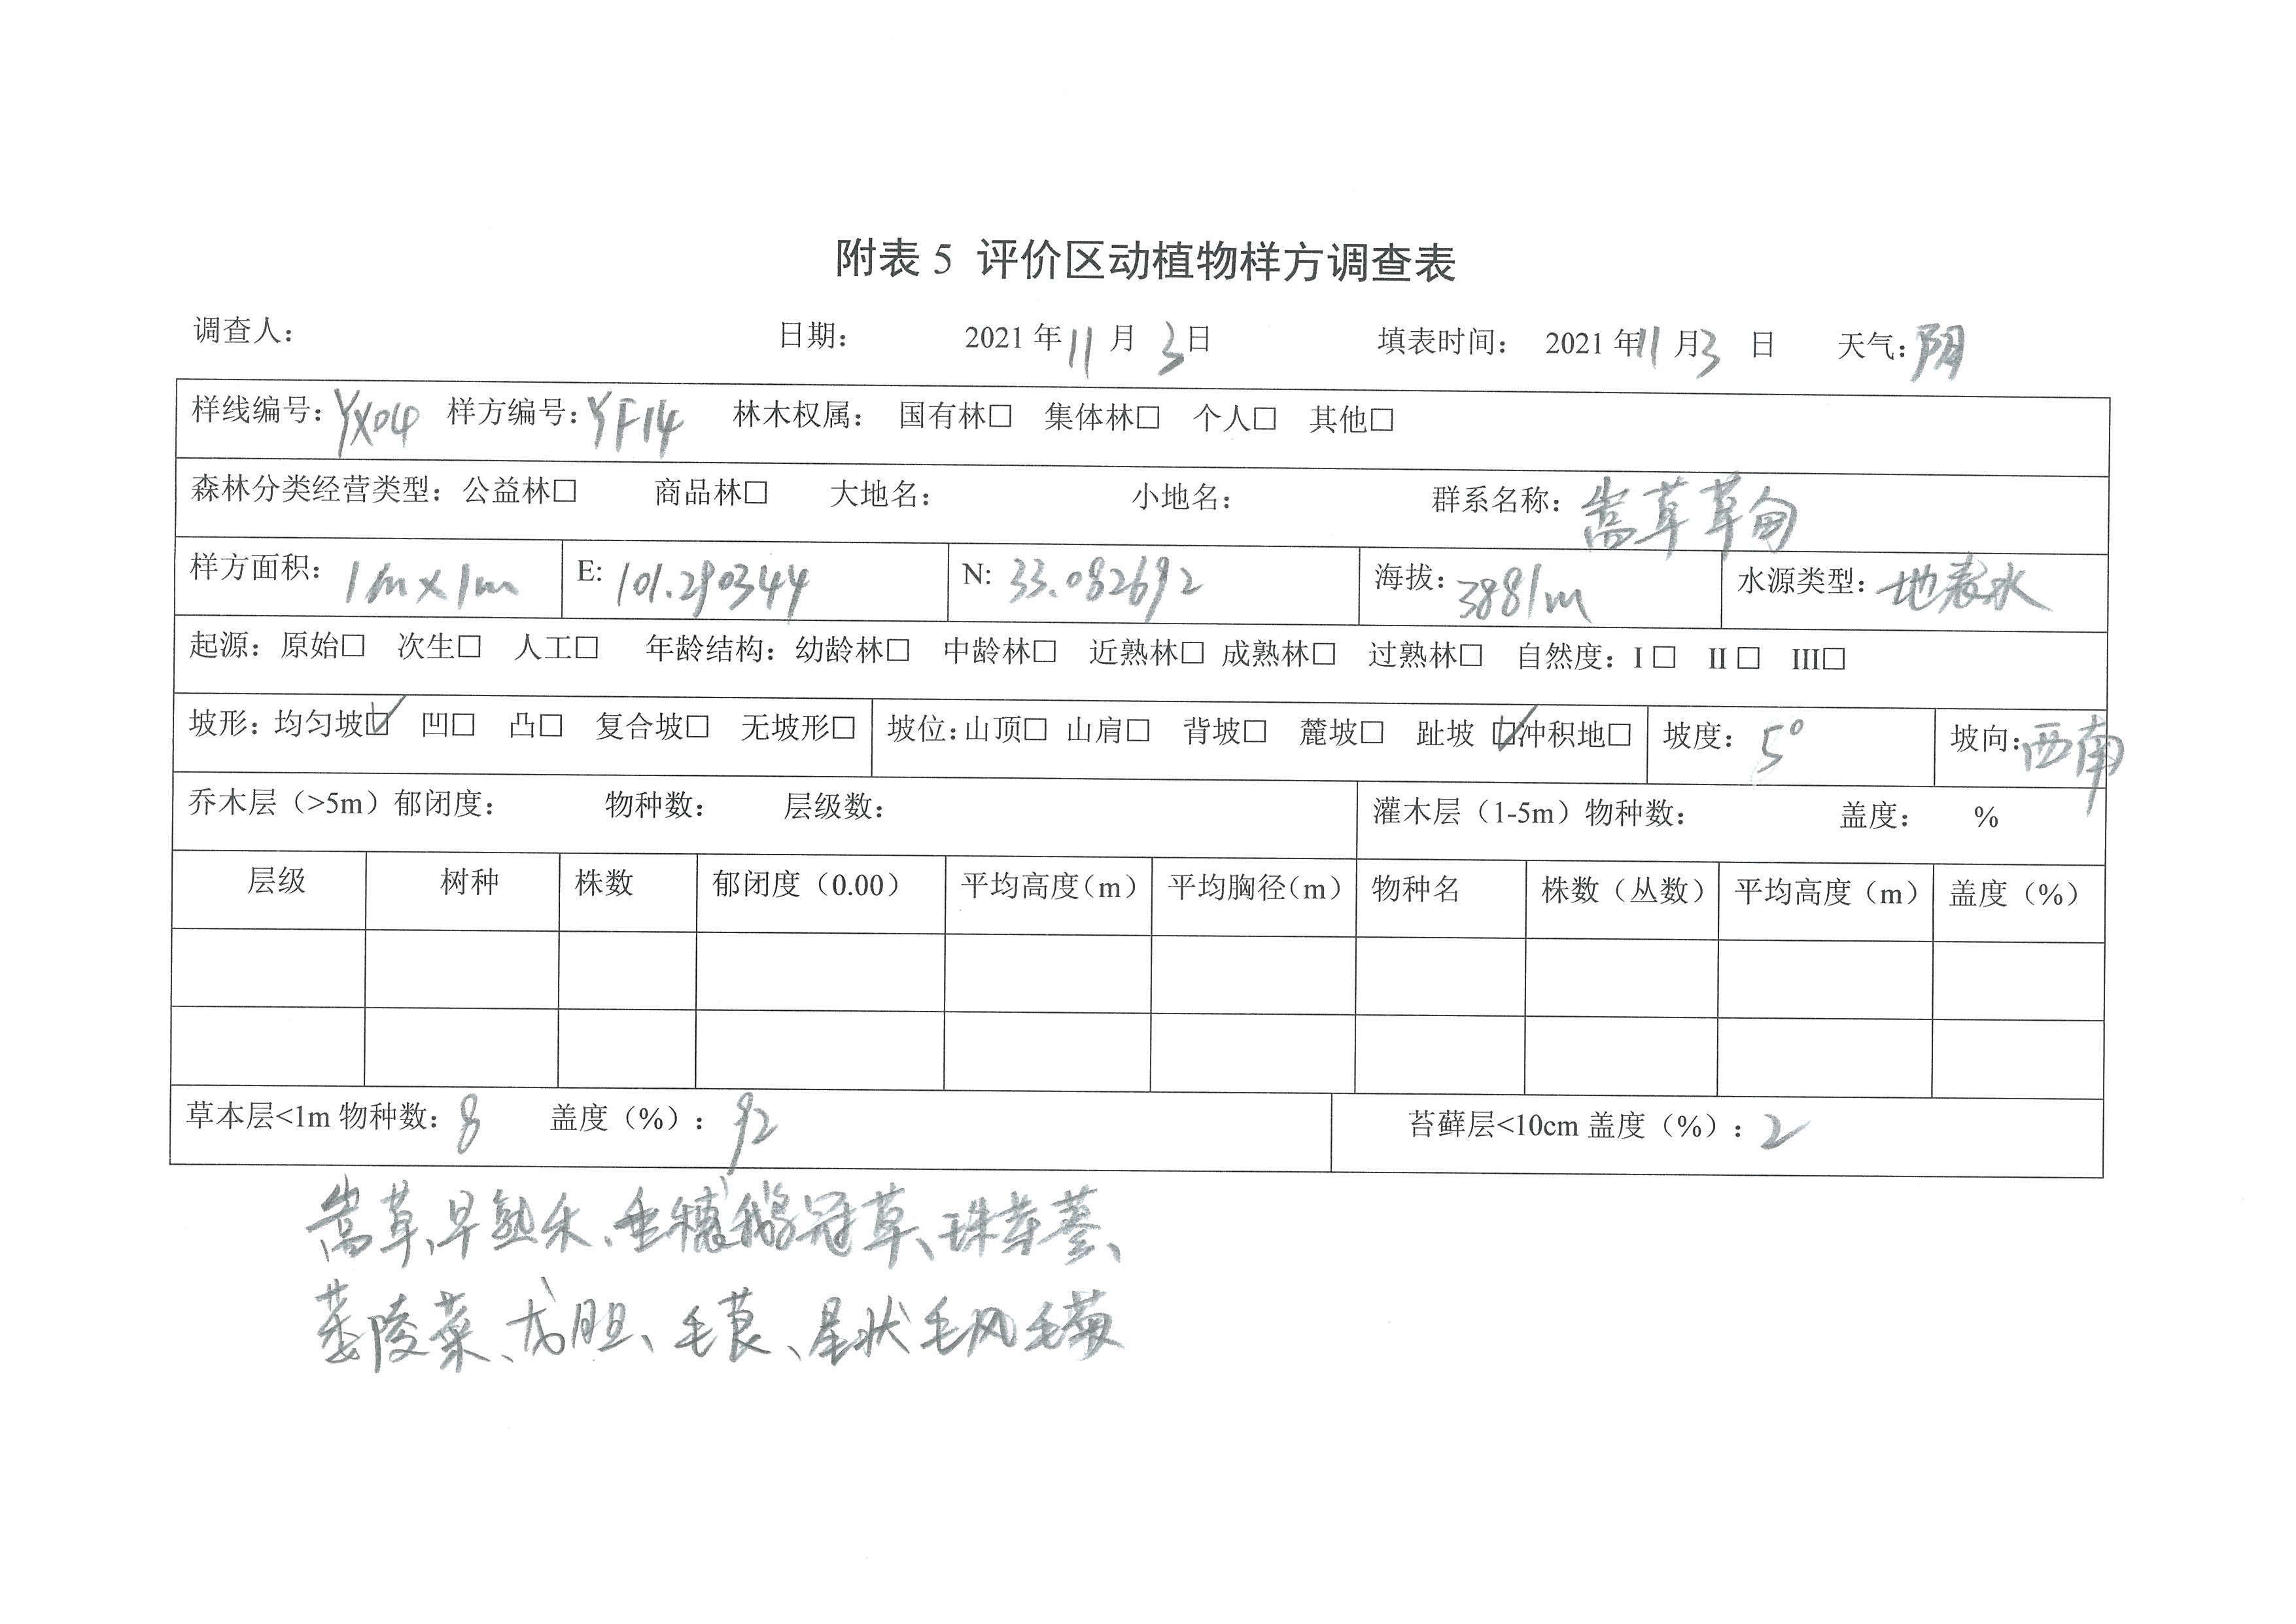 附表 5 评价区动植物样方调查表
调查人： 日期： 2021 年 11 月 3 日 填表时间： 2021 年 11 月 3 日 天气：阴
样线编号：YX04 样方编号：YF14 林木权属： 国有林□ 集体林□ 个人□ 其他□
森林分类经营类型：公益林□ 商品林□ 大地名： 小地名： 群系名称：嵩草草甸
样方面积：1m×1m E: 101.290344 N: 33.082692 海拔：3881m 水源类型：地表水
起源：原始□ 次生□ 人工□ 年龄结构：幼龄林□ 中龄林□ 近熟林□ 成熟林□ 过熟林□ 自然度：I □ II □ III□
坡形：均匀坡☑ 凹□ 凸□ 复合坡□ 无坡形□ 坡位：山顶□ 山肩□ 背坡□ 麓坡□ 趾坡 ☑冲积地□ 坡度：5° 坡向：西南
乔木层（>5m）郁闭度： 物种数： 层级数： 灌木层（1-5m）物种数： 盖度： %
层级 树种 株数 郁闭度（0.00） 平均高度（m） 平均胸径（m） 物种名 株数（丛数） 平均高度（m） 盖度（%）
草本层<1m 物种数：8 盖度（%）：92 苔藓层<10cm 盖度（%）：2
嵩草、早熟禾、垂穗鹅冠草、珠芽蓼、
委陵菜、龙胆、毛茛、星状毛风毛菊